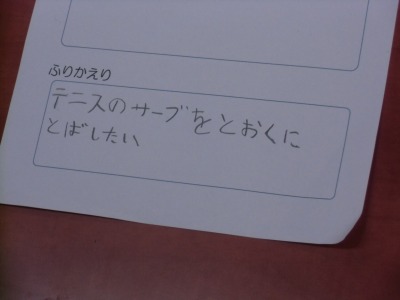 ふりかえり
テニスのサーブをとおくに
とばしたい